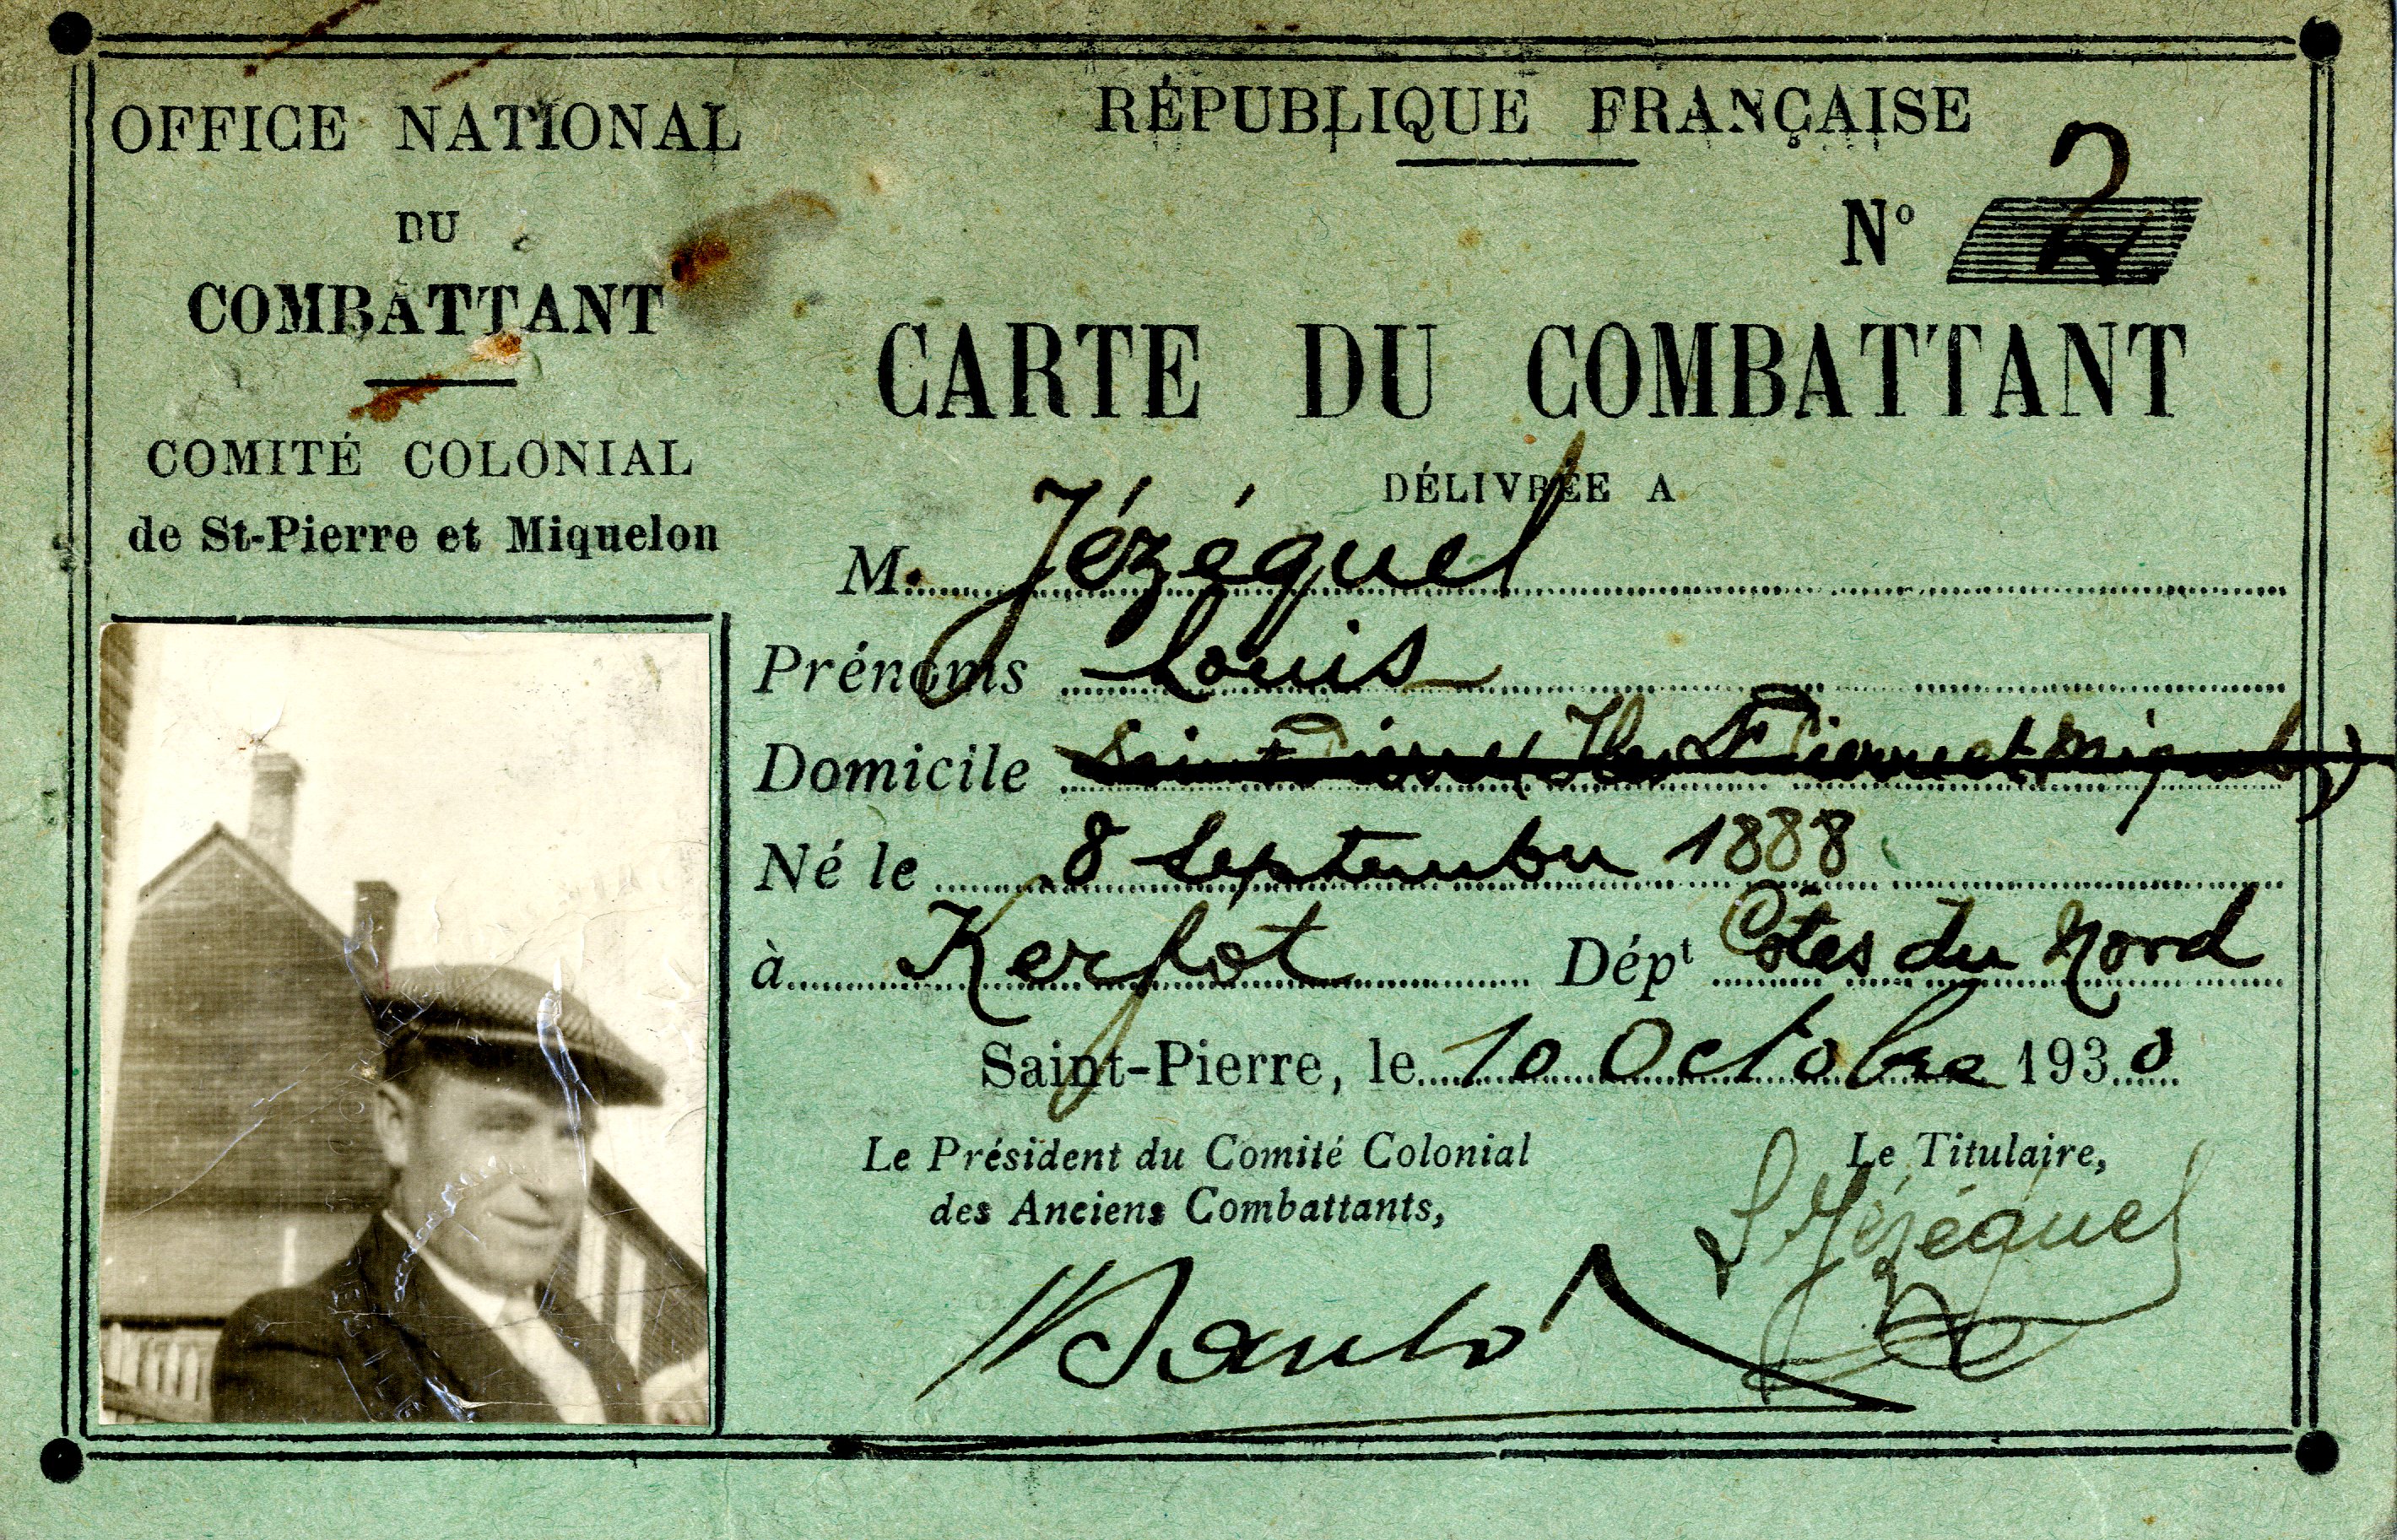 OFFICE NATIONAL
DU
COMBATTANT
COMITÉ COLONIAL
de St-Pierre et Miquelon
RÉPUBLIQUE FRANÇAISE
Nº 2
CARTE DU COMBATTANT
DÉLIVRÉE A
M. Jézéquel
Prénoms Louis
Domicile Saint Pierre (Iles St Pierre et Miquelon)
Né le 8 Septembre 1888
à Kerfot Dépt Côtes du Nord
Saint-Pierre, le 10 Octobre 1930
Le Président du Comité Colonial
des Anciens Combattants,
Le Titulaire,
L Jézéquel